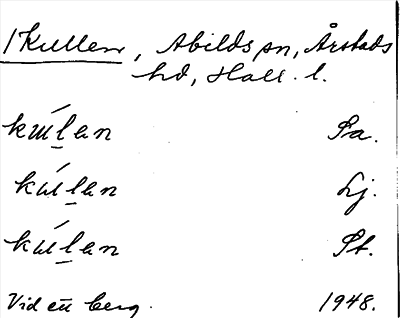 /Kullen, Abilds sn, Årstads
hd, Hall. l.
kúl̲an Sa.
kúl̲an Lj.
kúl̲an St.
Vid ett berg. 1948.